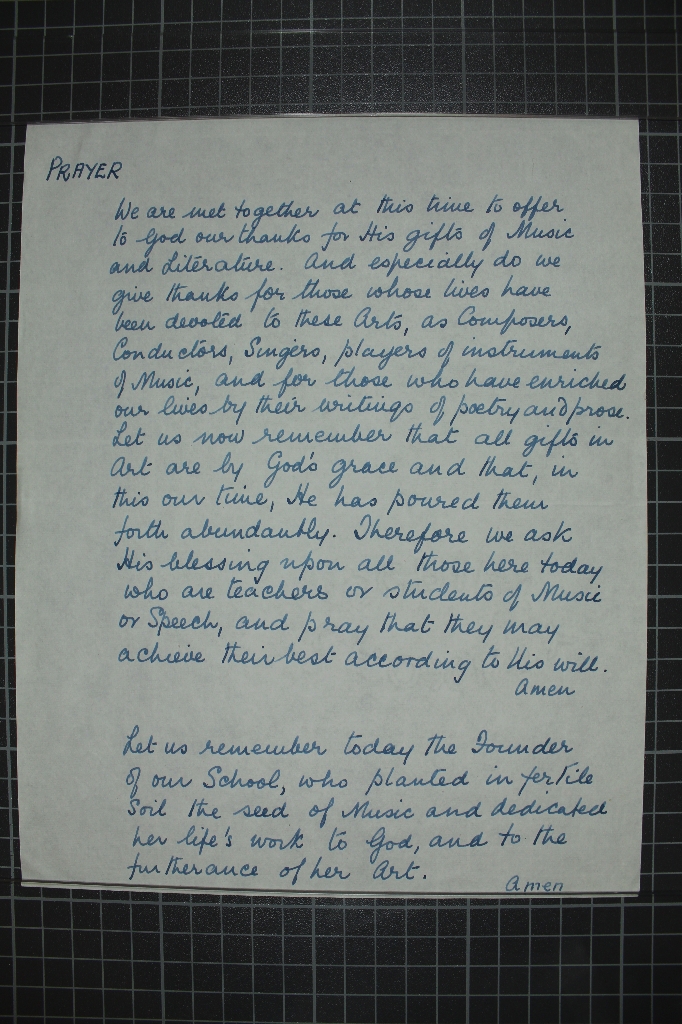 PRAYER
We are met together at this time to offer
to God our thanks for His gifts of Music
and Literature. And especially do we
give thanks for those whose lives have
been devoted to these Arts, as Composers,
Conductors, Singers, players of instruments
of Music, and for those who have enriched
our lives by their writings of poetry and prose.
Let us now remember that all gifts in
Art are by God's grace and that, in
this our time, He has poured them
forth abundantly. Therefore we ask
His blessing upon all those here today
who are teachers or students of Music
or Speech, and pray that they may
achieve their best according to His will.
Amen
Let us remember today the Founder
of our School, who planted in fertile
Soil the seed of Music and dedicated
her life's work to God, and to the
furtherance of her Art.
Amen